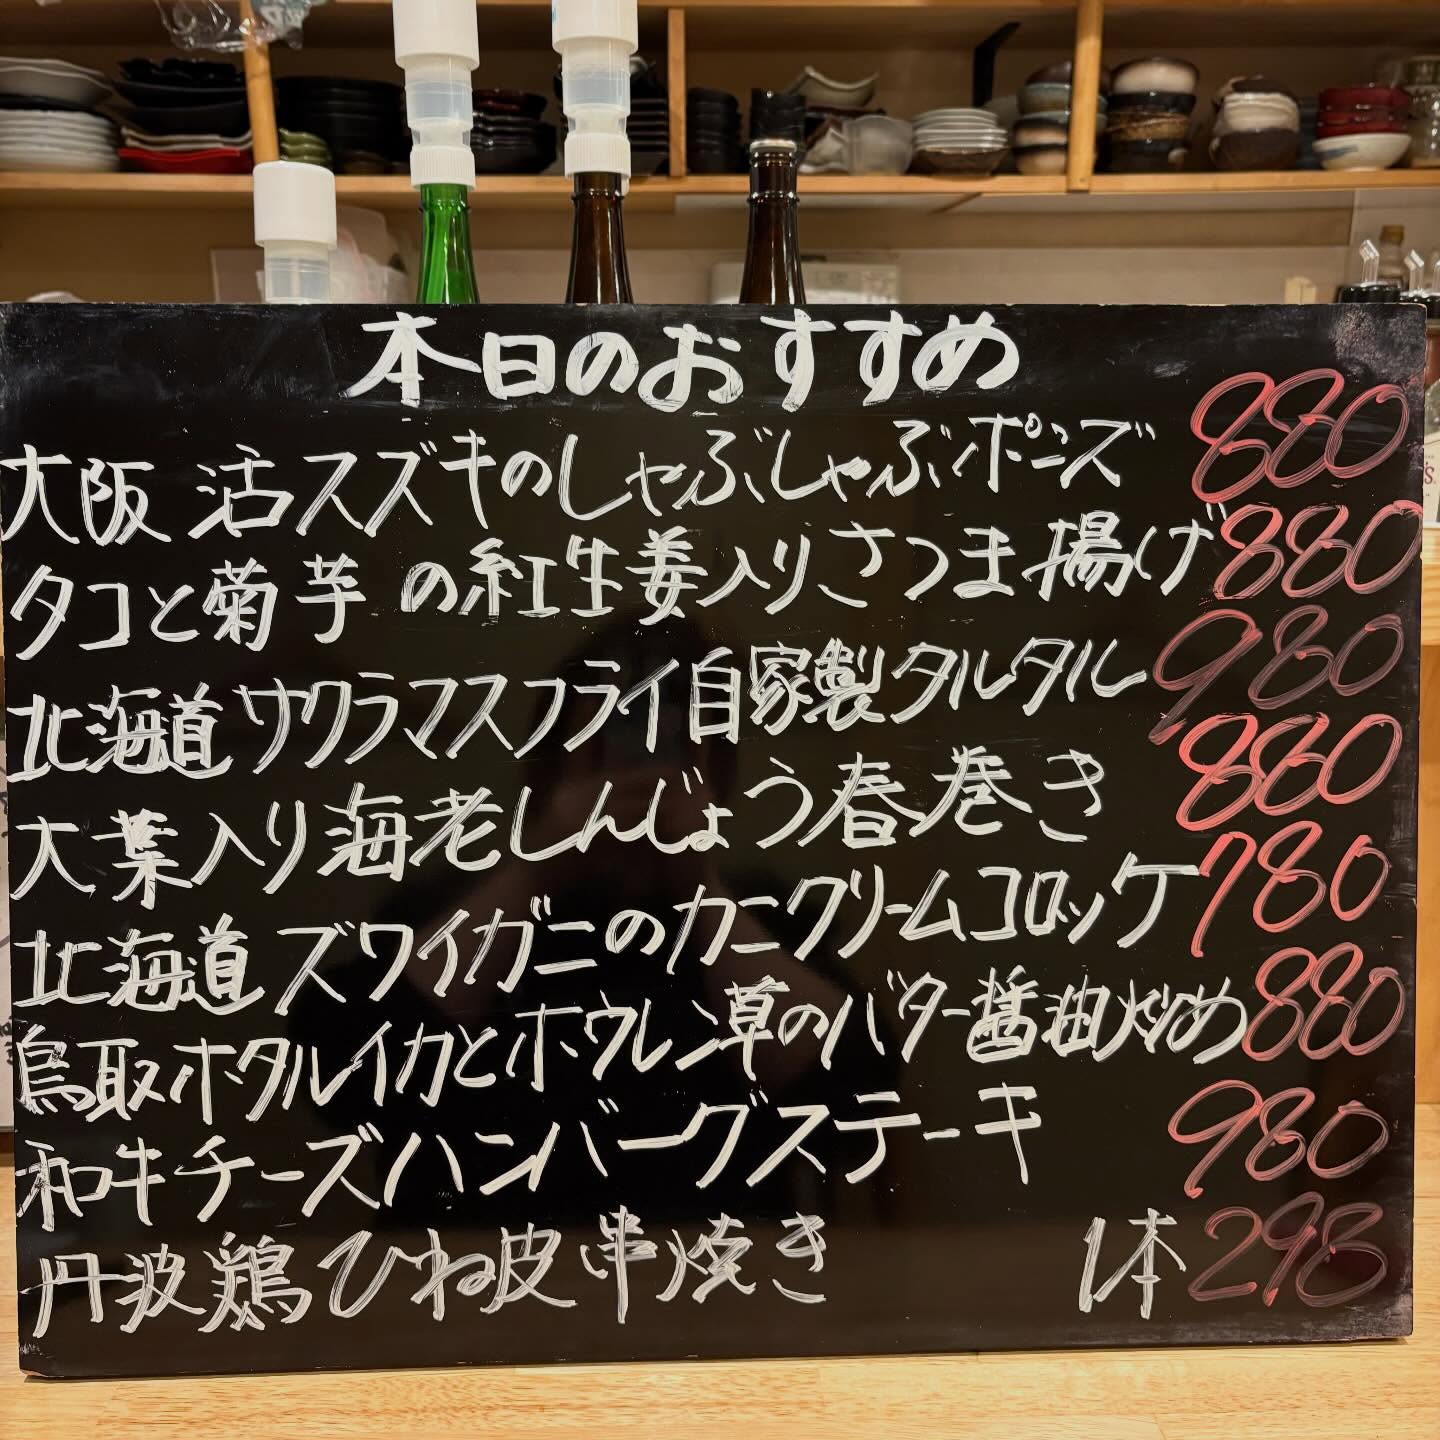 本日のおすすめ
大阪 活スズキのしゃぶしゃぶポン酢 880
タコと菊芋の紅生姜入りさつま揚げ 880
北海道サクラマスフライ自家製タルタル 980
大葉入り海老しんじょう春巻き 880
北海道 ズワイガニのカニクリームコロッケ 780
鳥取ホタルイカとホウレン草のバター醤油炒め 880
和牛チーズハンバーグステーキ 980
丹波鶏ひね皮串焼き 1本 298